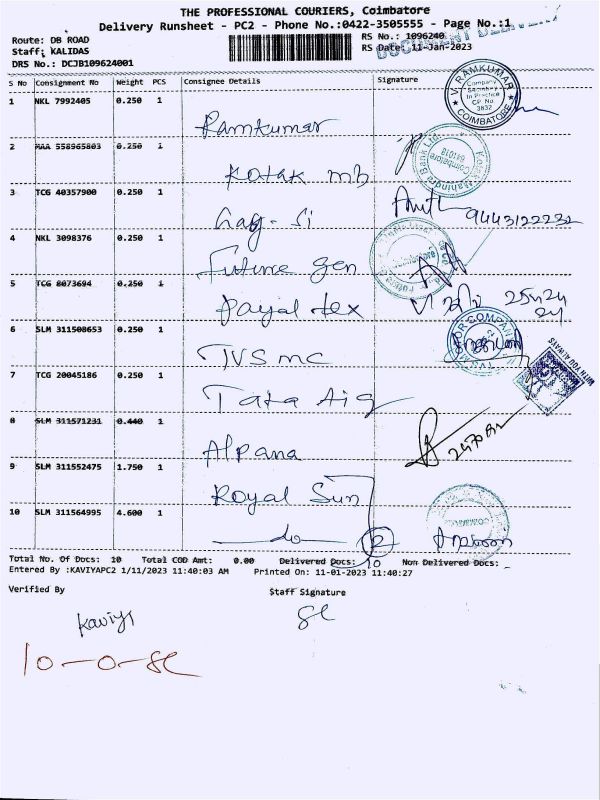 THE PROFESSIONAL COURIERS, Coimbatore
Delivery Runsheet - PC2 - Phone No.:0422-3505555 - Page No.:1
Route: DB ROAD
RS No.: 1096240
Staff: KALIDAS
RS Date: 11-Jan-2023
DRS No.: DCJB109624001
S No Consignment No Weight PCS Consignee Details Signature
1 NKL 7992405 0.250 1
V. RAMKUMAR
Company
Secretary
In Practice
CP. No
3832
COIMBATORE
Ramkumar
2 MAA 558965803 0.250 1
Kotak Mahindra Bank Ltd
Coimbatore
641018
Kotak mb
3 TCG 40357900 0.250 1
9443122232
4 NKL 3098376 0.250 1
Future gen
5 TCG 8073694 0.250 1
Payal tex
6 SLM 311508653 0.250 1
TVS mc
WITH YOU ALWAYS
7 TCG 20045186 0.250 1
Tata Aig
8 SLM 311571231 0.440 1
Alpana
9 SLM 311552475 1.750 1
Royal Sun
10 SLM 311564995 4.600 1
do 2
Total No. Of Docs: 10 Total COD Amt: 0.00 Delivered Docs: 10 Non Delivered Docs:
Entered By :KAVIYAPC2 1/11/2023 11:40:03 AM Printed On: 11-01-2023 11:40:27
Verified By Staff Signature
Kaviya
10-0-